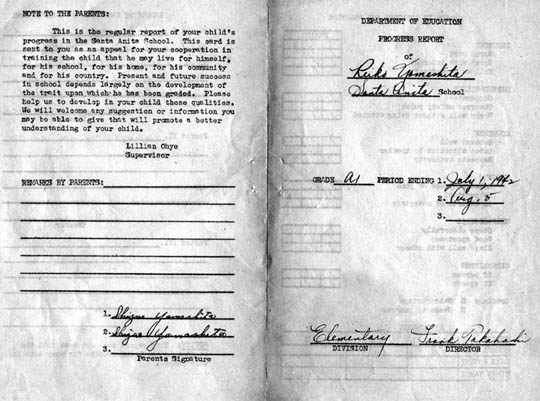 NOTE TO THE PARENTS:
This is the regular report of your child's
progress in the Santa Anita School. This card is
sent to you as an appeal for your cooperation in
training the child that he may live for himself,
for his school, for his home, for his community
and for his country. Present and future success
in school depends largely on the development of
the trait upon which he has been graded. Please
help us to develop in your child these qualities.
We will welcome any suggestion or information you
may be able to give that will promote a better
understanding of your child.
Lillian Ohye
Supervisor
REMARKS BY PARENTS:
1. Yamashita
2. Yamashita
3.
Parents Signature
DEPARTMENT OF EDUCATION
PROGRESS REPORT
of
Yamashita
Santa Anita School
GRADE A1 PERIOD ENDING 1. July 1, 1942
2. Aug. 5
3.
Elementary Frank Takahashi
DIVISION DIRECTOR